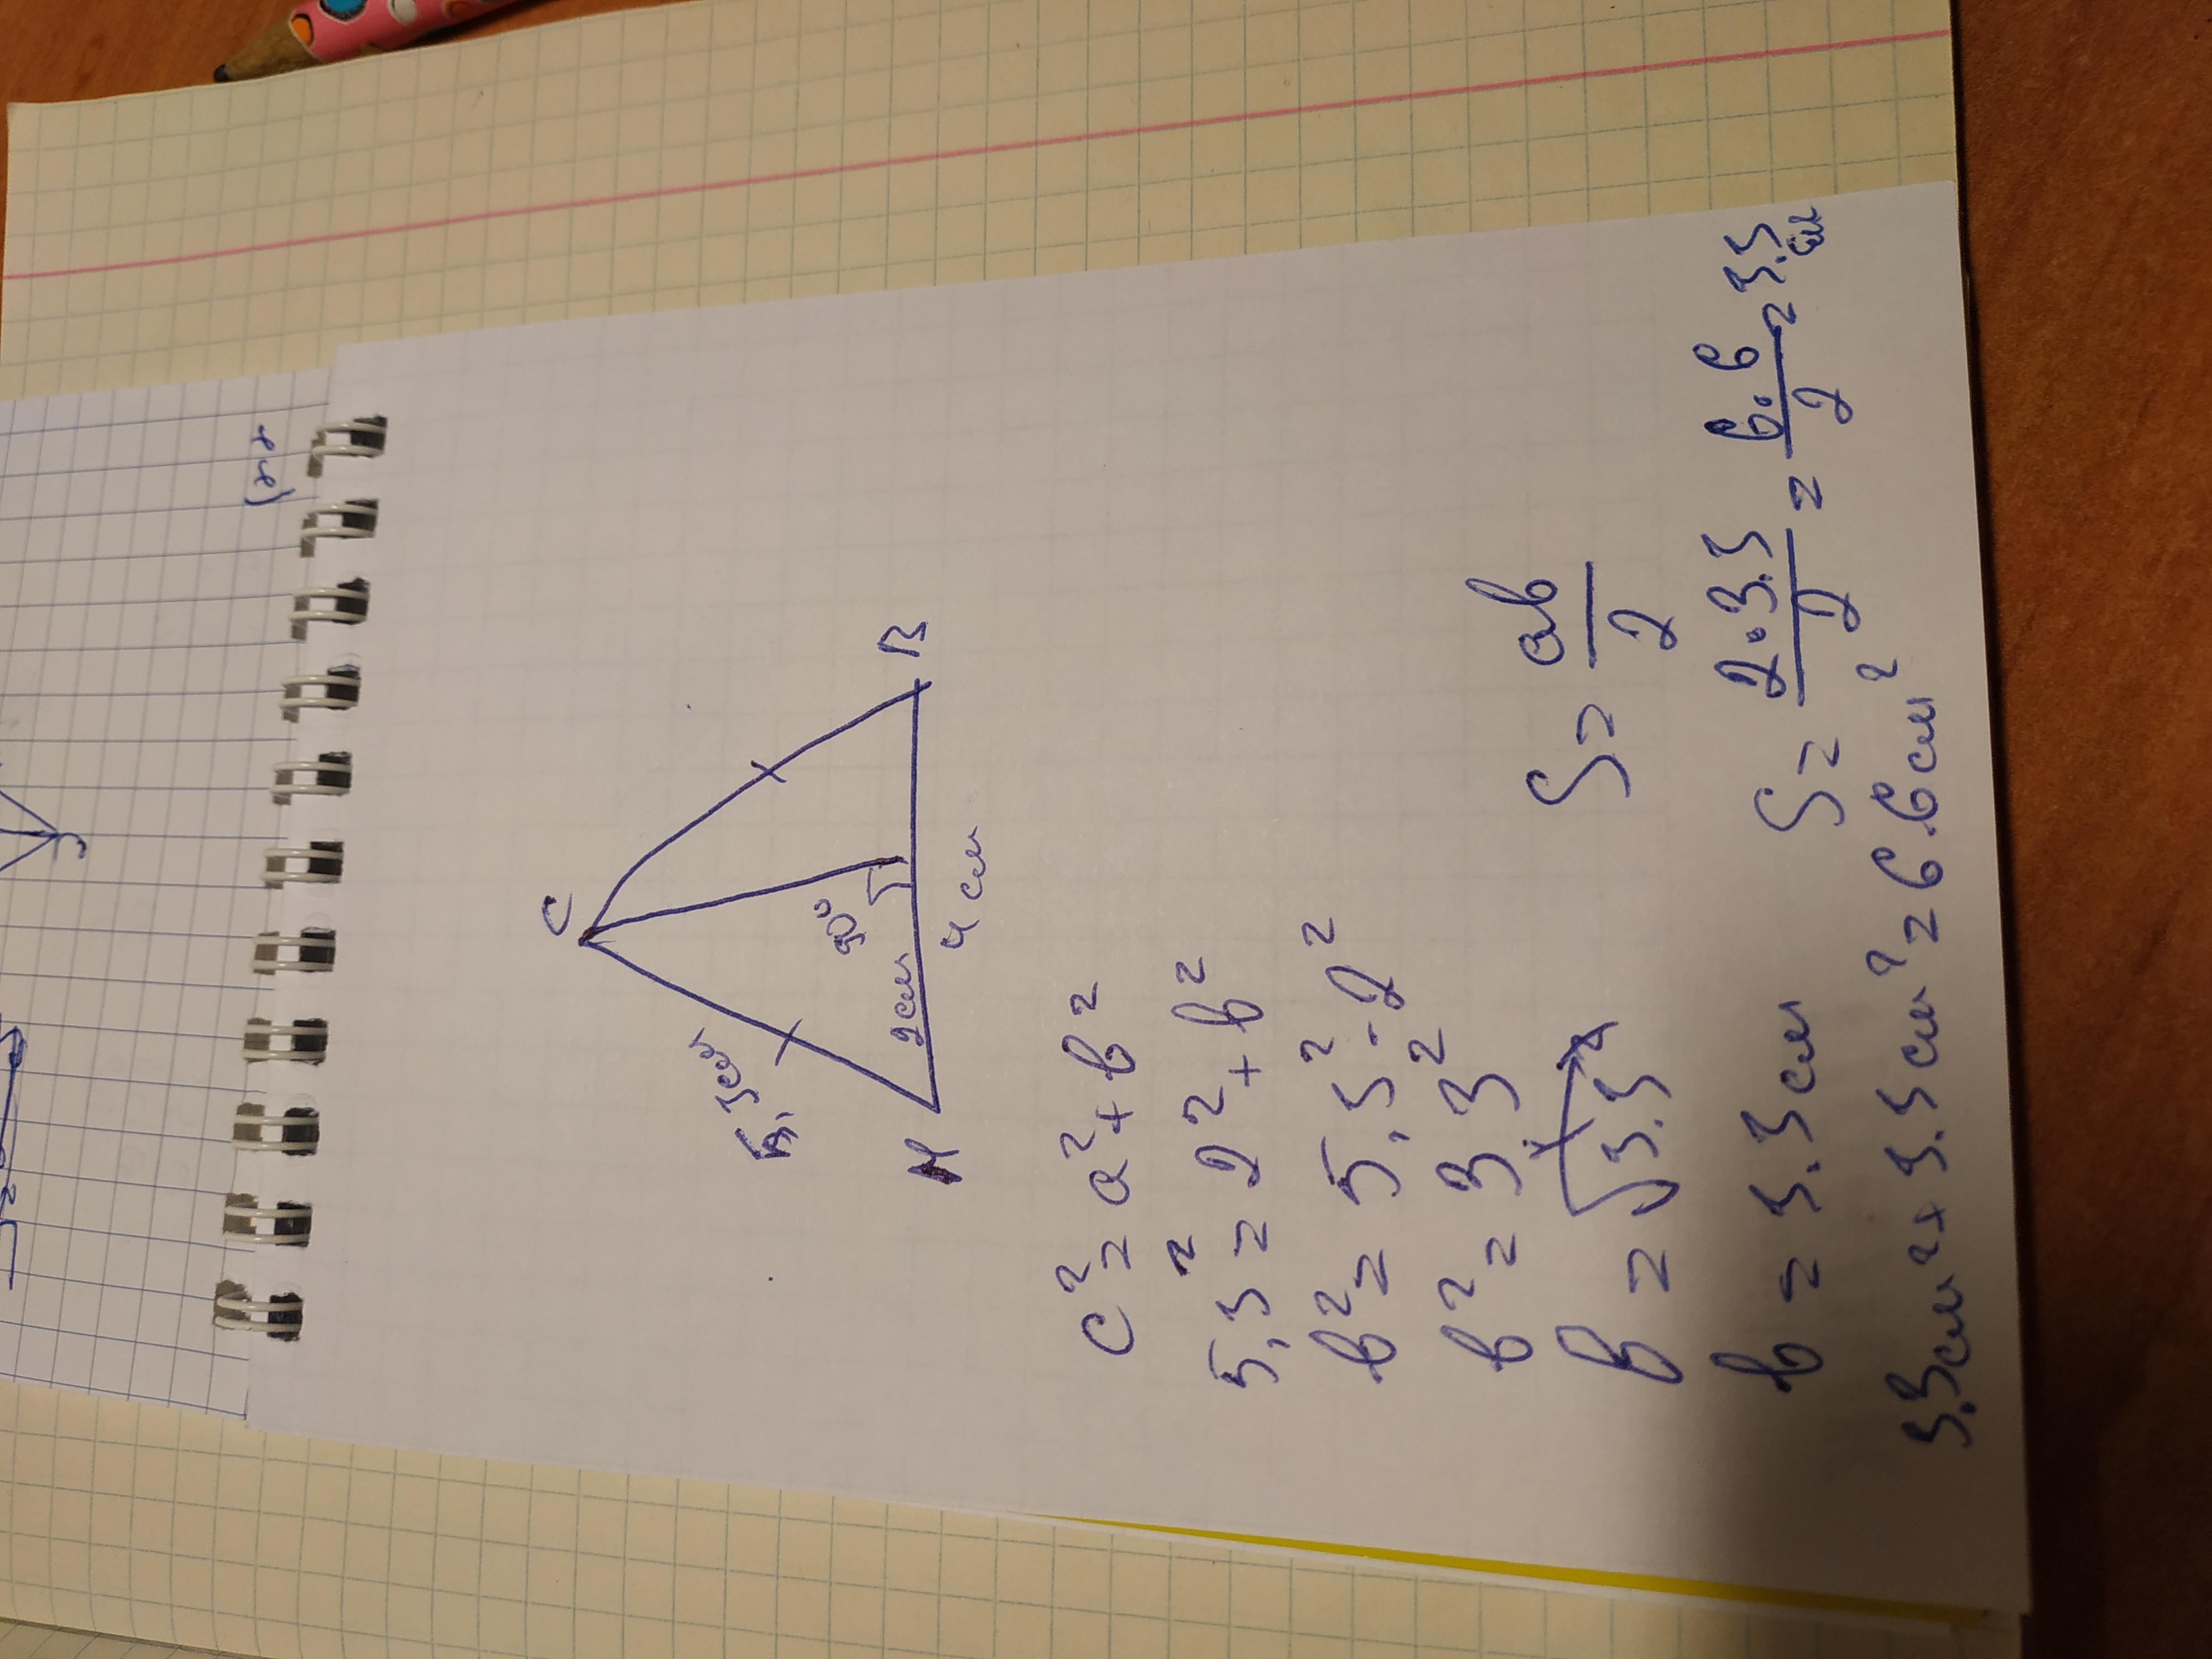 C
5,3см
90°
2см
М
В
4 см
c² = a² + b²
5,3² = 2² + b²
b² = 5,3² - 2²
b² = 3,3²
b = √3.3²
b = 3.3 см
S = ab/2
S = 2·3.3/2 = 6.6/2 = 3.3 см
3.3см² + 3.3 см² = 6.6 см²